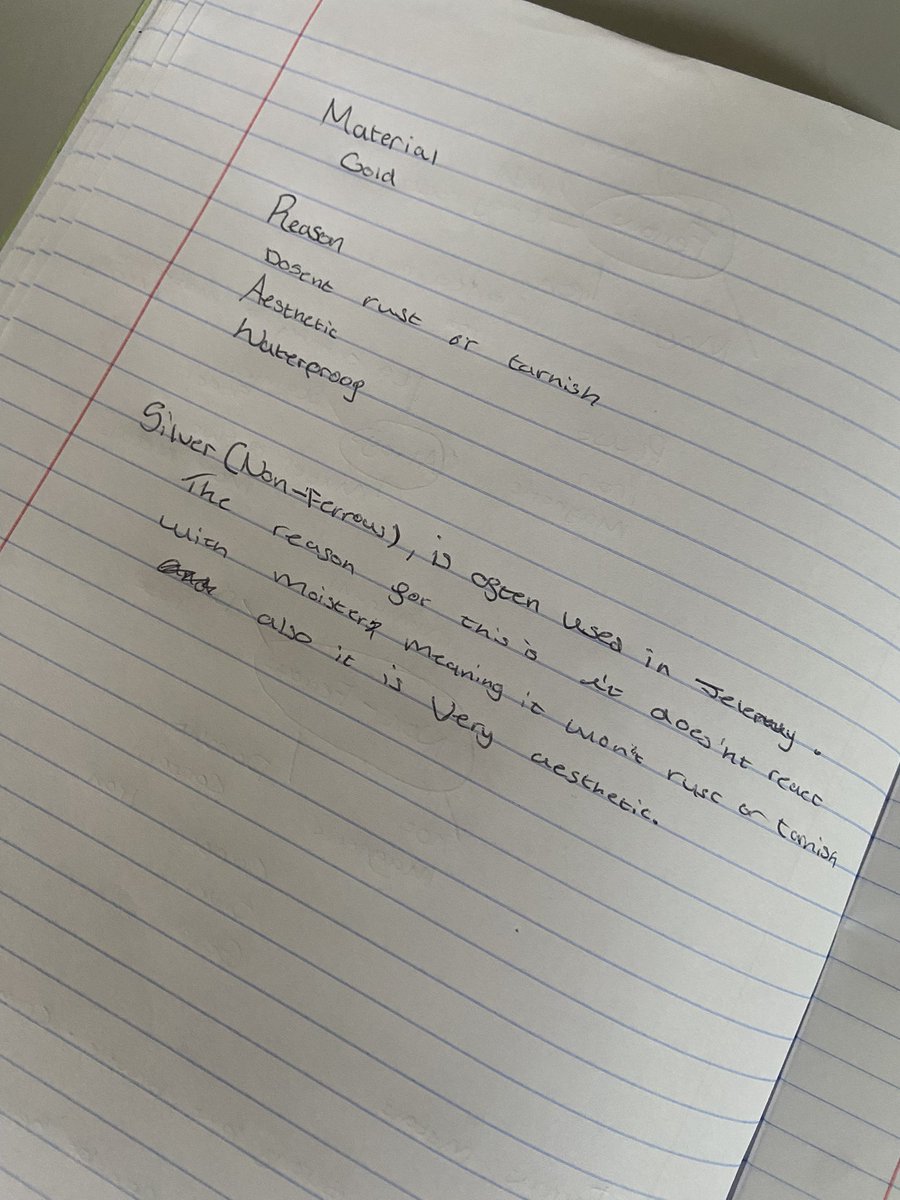 Material
Gold
Reason
Dosent rust or tarnish
Aesthetic
Waterproof
Silver (Non-Ferrous), is often used in Jelerey.
The reason for this is it does'nt react
with moister, meaning it won't rust or tarnish
also it is very aesthetic.